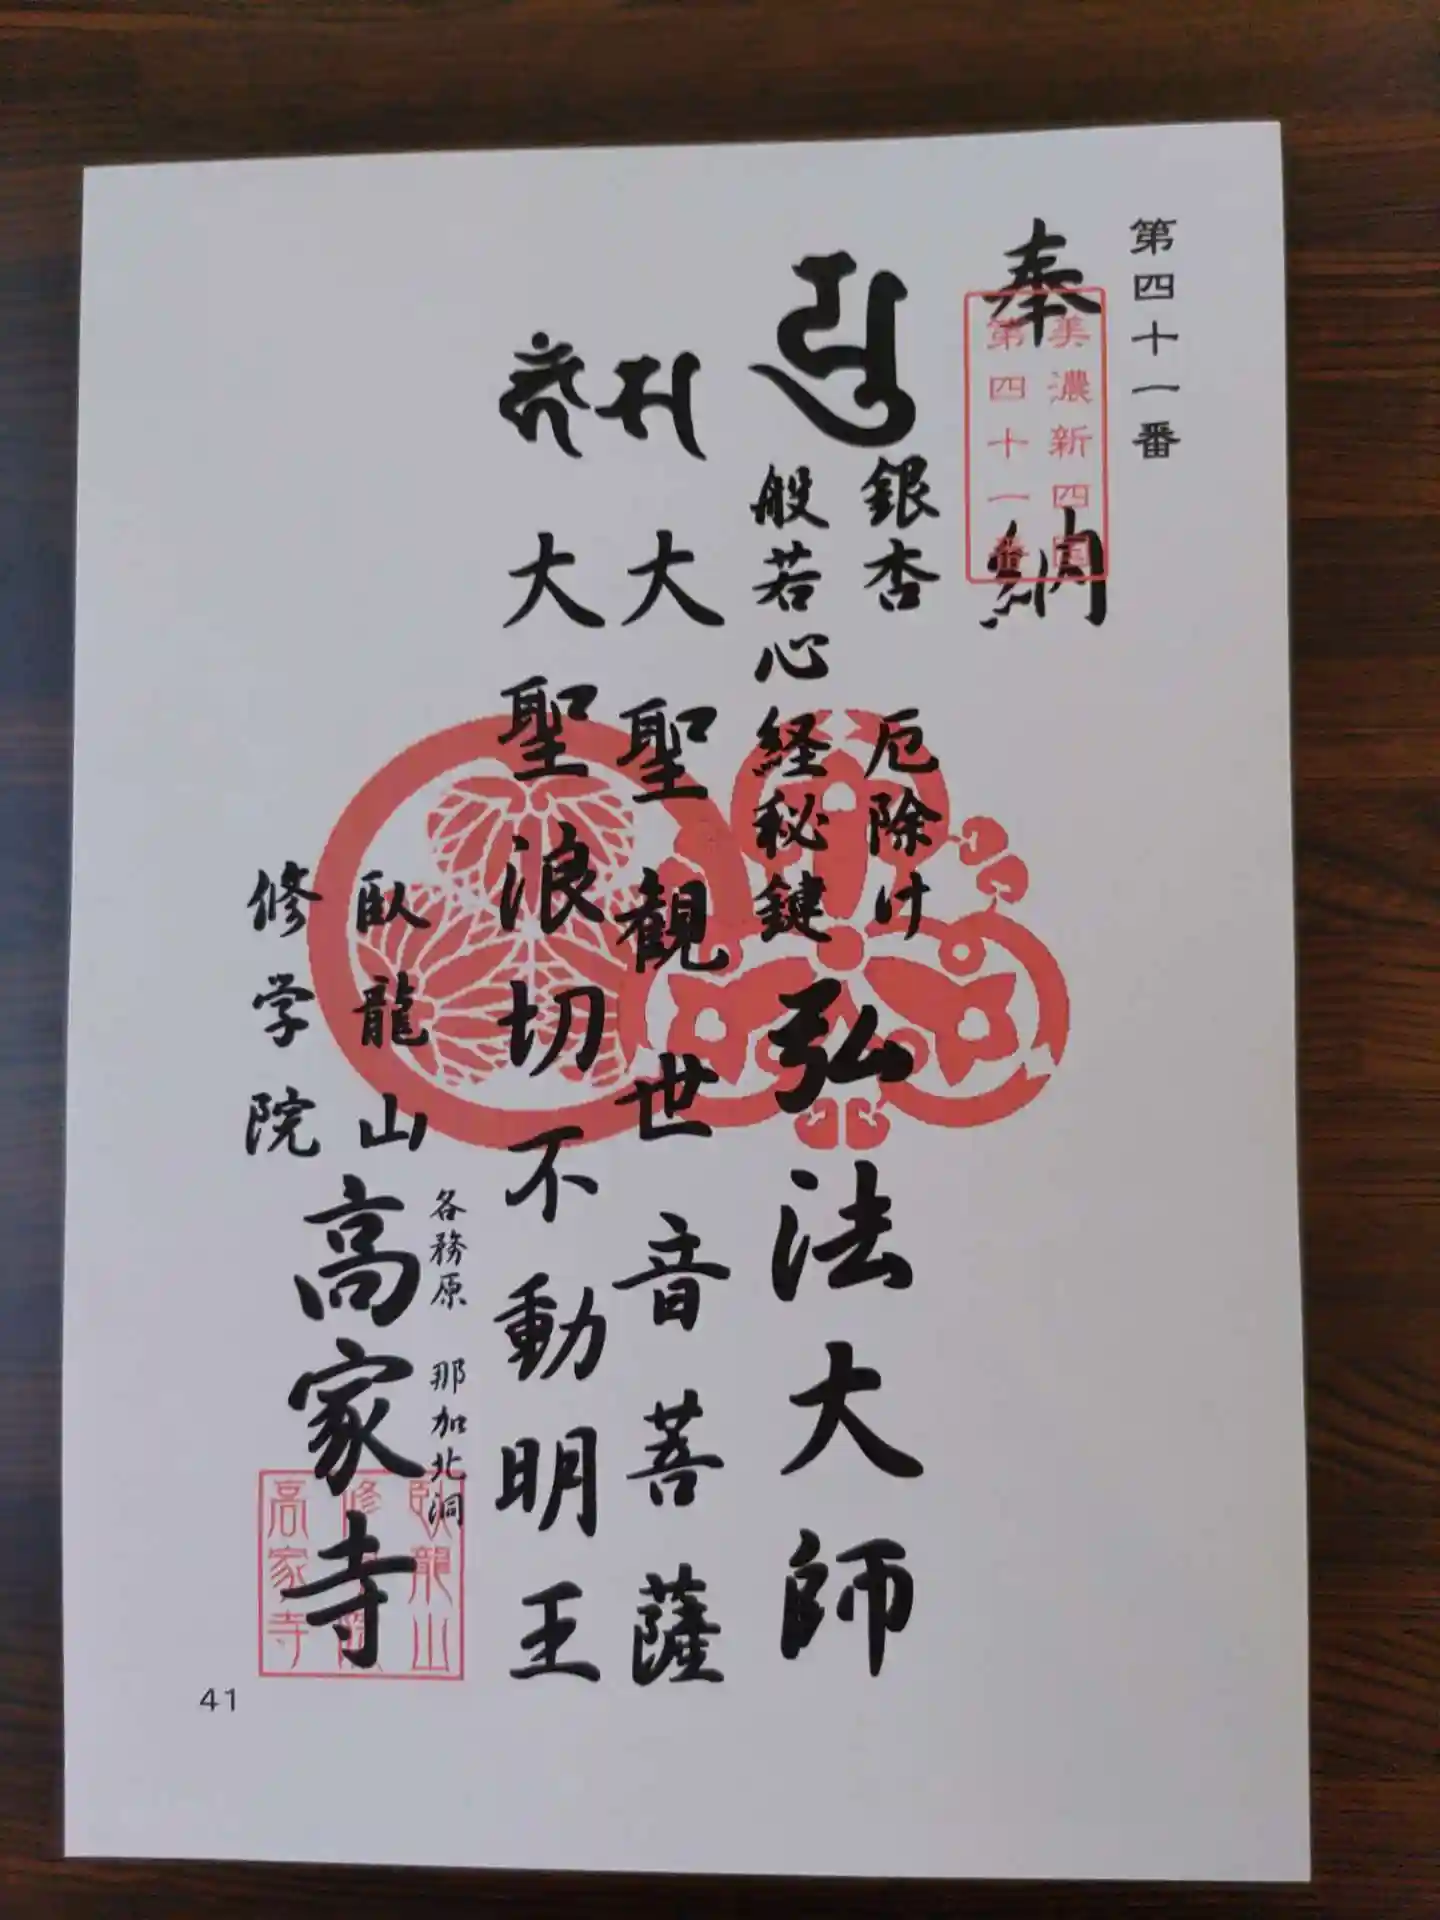 第四十一番
奉納
美濃新四国
第四十一番
銀杏 厄除け
般若心経秘鍵
弘法大師
大聖観世音菩薩
大聖浪切不動明王
各務原 那加北洞
臥龍山
修学院
高家寺
臥龍山
修学院
高家寺
41